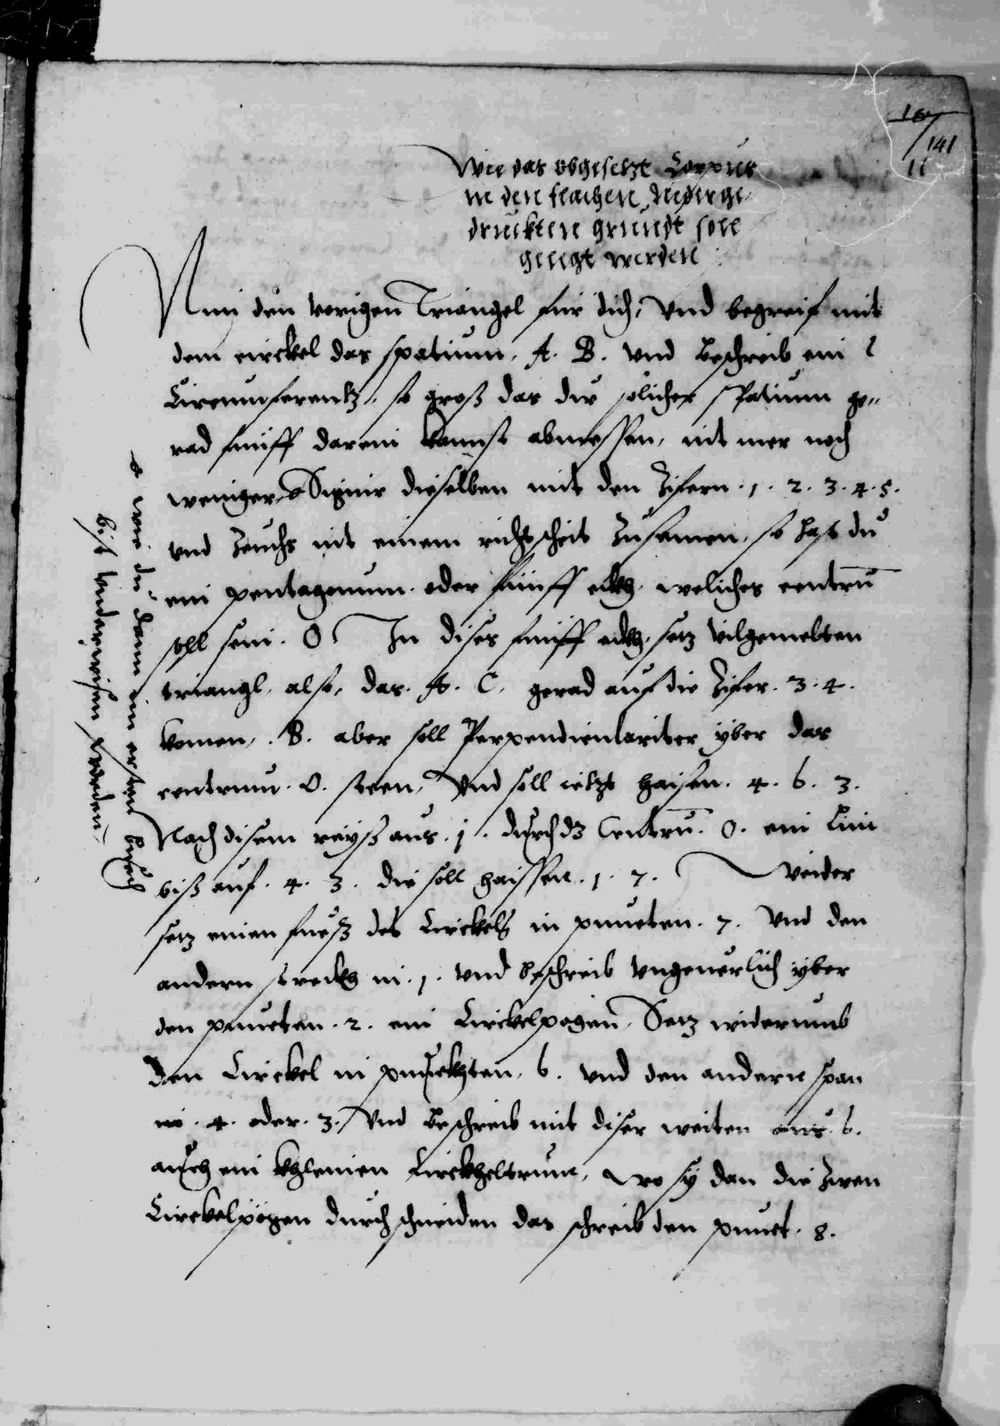 167/141
11
Wie das obgesetzt Corpus
in den flachen Niderge
druckten grundt soll
gelegt werden
Nim den vorigen Triangel für dich, vnd begreif mit
dem circkel das spatium. A. B. vnd beschreib ein
Circumferentz, so groß das du solicher spatium ge„
rad fünff darein kanst abmessen, nit mer noch
weniger, Signir dieselben mit den Zifern. 1. 2. 3. 4. 5.
vnd zeuchs mit einem richtscheit zusamen, so hast du
ein pentagonum. oder fünff eckh. weliches centrū
soll sein. O In dises fünff eckh. setz vilgemelten
triangl, also, das. A. C. gerad auf die Zifer. 3. 4.
komen,. B. aber soll Perpendiculariter yber das
centrum. O. steen, Vnd soll ietzt haisen. 4. 6. 3.
Nach disem reyß aus. 1. durch dz Centrū. O. ein Lini
biß auf. 4. 3. die soll haissen. 1. 7. Weider
setz einen fueß des Circkels in puncten. 7. vnd den
andern streckh in. 1. vnd beschreib vngeuerlich yber
den puncten. 2. ein Circkelpogen, Setz widerumb
den Circkel in punckten. 6. vnd den andern span
in. 4. oder. 3. Vnd beschreib mit diser weiten aus. 6.
auch ein khleinen Circkheltrum, Wo sy dan die zwen
Circkelpögen durchschneiden das schreib den punct. 8.
wie du dann im ersten buech
bist vnderwisen worden